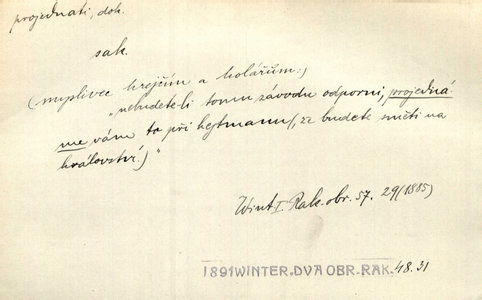 projednati, dok.
sak.
(myslivec krejčím a kolářům:)
"nebudete-li tomu závodu odporni, projedná-
me vám to při hejtmanu(, že budete směti na
království.)"
Wint I. Rak. obr. 57. 29 (1885)
1891 WINTER. DVA OBR. RAK. 48. 31